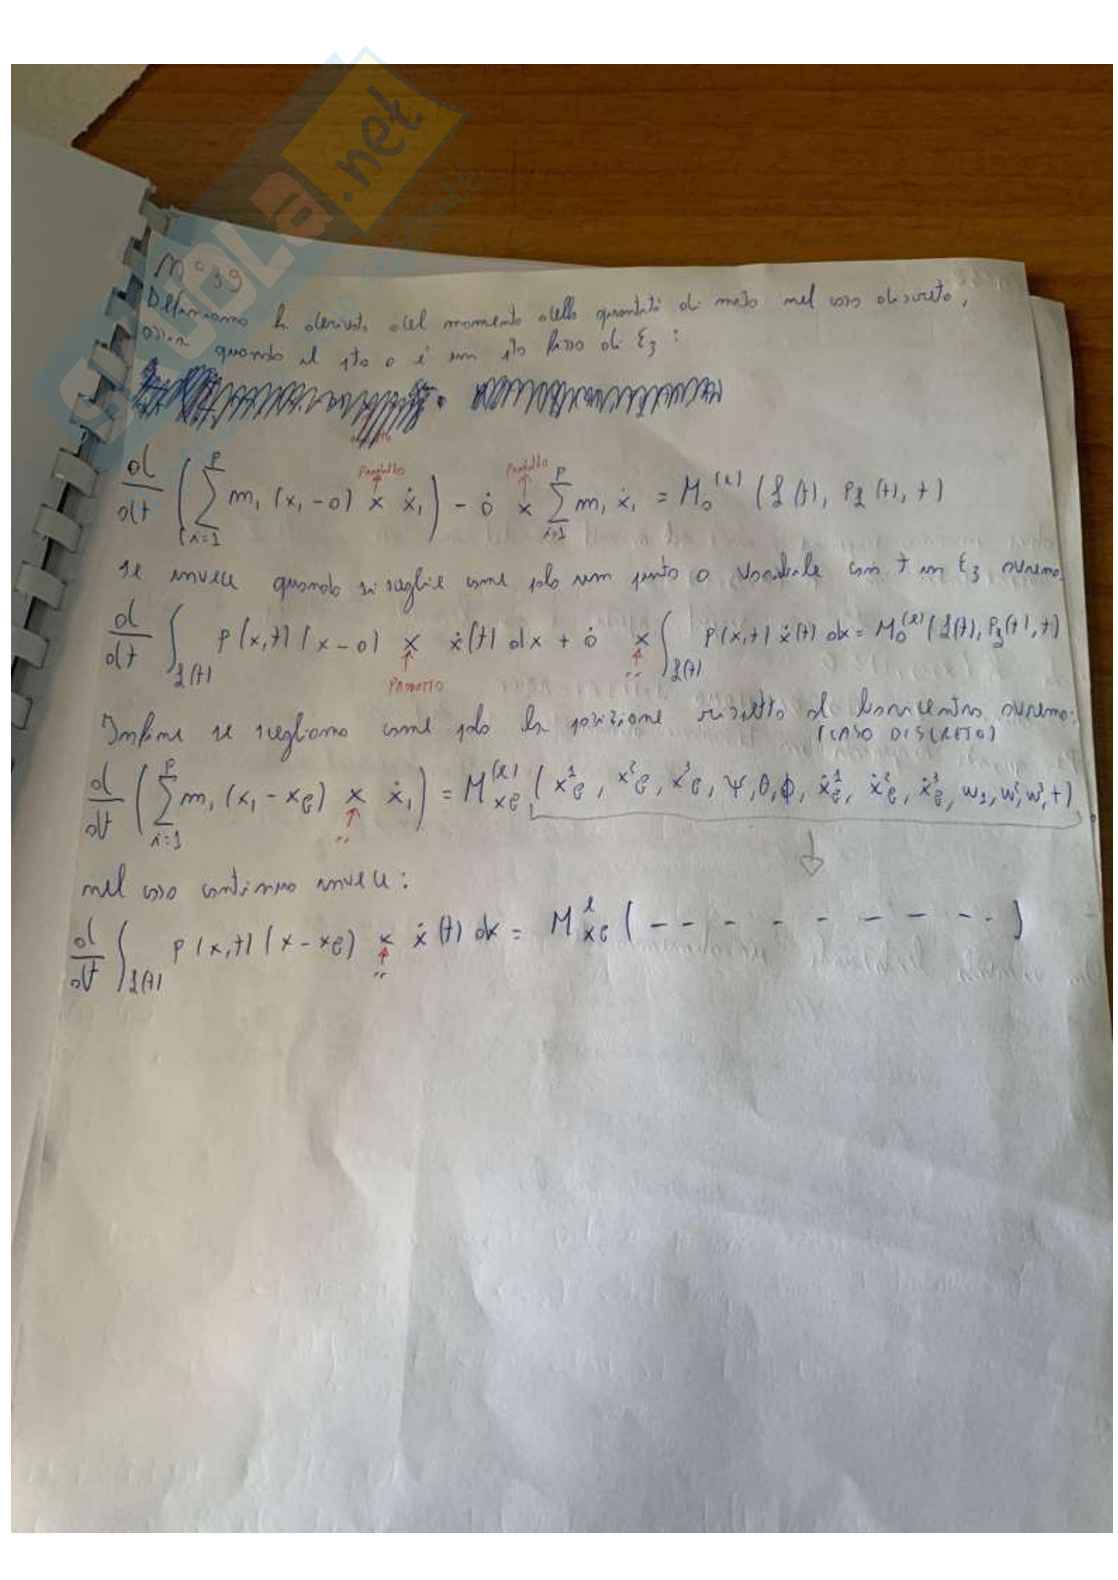 SKUOLA.net
N° 39
Definiamo la derivata del momento della quantità di moto nel caso discreto,
ossia quando il pto o è un pto fisso di ξ3 :
Prodotto Prodotto
d/dt ( Σ_{i=1}^{P} m_i (x_i - o) × ẋ_i ) - ȯ × Σ_{i=1}^{P} m_i ẋ_i = M_o^{(e)} (ℓ(t), P_ℓ(t), t)
se invece quando si sceglie come polo un punto o variabile con t in ξ3 avremo:
d/dt ∫_{ℓ(t)} ρ(x,t) (x-o) × ẋ(t) dx + ȯ × ∫_{ℓ(t)} ρ(x,t) ẋ(t) dx = M_o^{(e)} (ℓ(t), P_ℓ(t), t)
PRODOTTO "
Infine se scegliamo come polo la posizione rispetto al baricentro avremo:
(CASO DISCRETO)
d/dt ( Σ_{i=1}^{P} m_i (x_i - x_e) × ẋ_i ) = M_{xe}^{(e)} ( x_e^1, x_e^2, x_e^3, ψ, θ, ϕ, ẋ_e^1, ẋ_e^2, ẋ_e^3, w_1, w^2, w^3, t)
"
nel caso continuo invece:
d/dt ∫_{ℓ(t)} ρ(x,t) (x - x_e) × ẋ(t) dx = M_{xe}^{e} ( - - - - - - - - - )
"